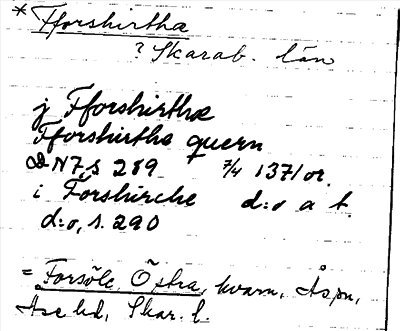 * Fforshirtha
? Skarab. län
j Fforshirthæ
Fforshirtha quern
N7, s 289 7/4 1371 or.
i Forshirche d:o a t.
d:o, s. 290
= Forsöle, Östra, kvarn, Åspn,
Åse hd, Skar. l.